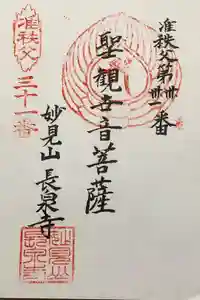 准秩父第卅一番
聖観世音菩薩
妙見山 長泉寺
准秩父
三十一番